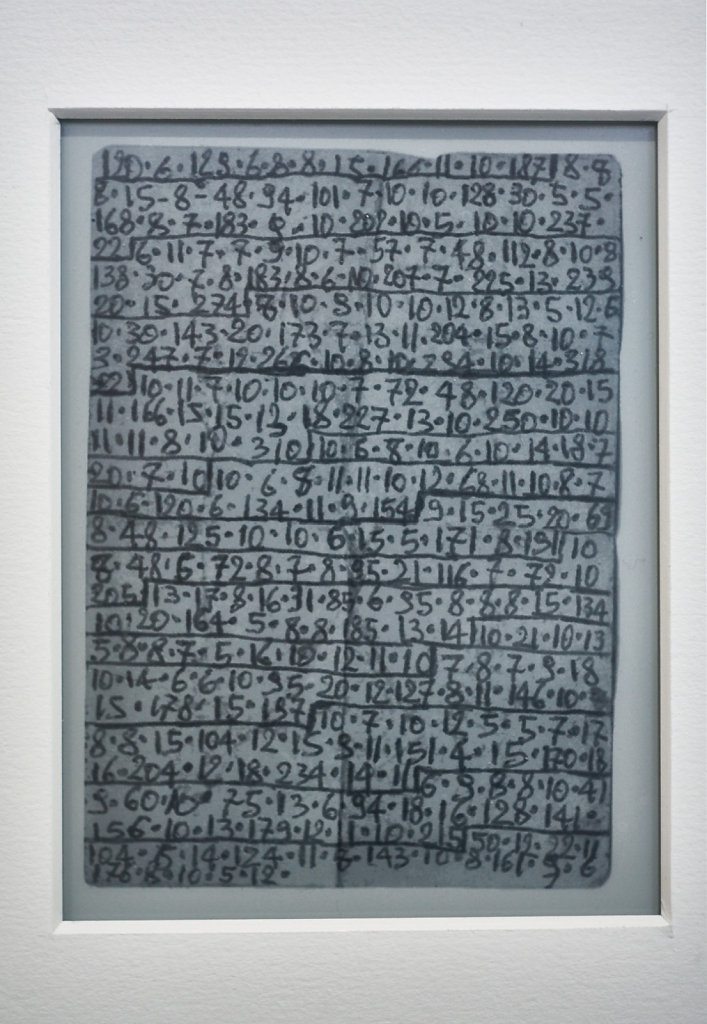 120·6·129·6·8·8·15·166·11·10·187|8·8
8·15-8·48·94·101·7·10·10·128·30·5·5·
168·8·7·183· ·10·202·10·5·10·10·237·
22|6·11·7·7·9·10·7·57·7·48·112·8·10·8
138·30·7·8·183·8·6·10·207·7·225·13·239
20·15·274|8·10·9·10·10·12·8·13·5·12·6
10·30·143·20·173·7·13·11·204·15·8·10·7
3·247·7·12·268·10·8·10·284·10·14·318
22|10·11·7·10·10·10·7·72·48·120·20·15
11·166·15·15·12·18·227·13·10·250·10·10
11·11·8·10·310|10·6·8·10·6·10·14·18·7
20·7·10|10·6·8·11·11·10·12·68·11·10·8·7
10·6·120·6·134·11·9·154|9·15·25·20·69
8·48·125·10·10·6·15·5·171·8·191|10
8·48·6·72·8·7·8·95·21·116·7·72·10
205|13·17·8·16·31·85·6·95·8·8·8·15·134
10·20·164·5·8·8·185·13·14|10·21·10·13
5·8·8·7·5·16·10·12·11·10|7·8·7·9·18
10·14·6·6·10·95·20·12·127·8·11·146·10·
15·178·15·197|10·7·10·12·5·5·7·17
8·8·15·104·12·15·9·11·151·4·15·170·18
16·204·12·18·234·14·11|6·9·8·8·10·41
9·60·10·75·13·6·94·18·16·128·141·
156·10·13·179·12·11·10·2 |50·12·22·11
104·15·14·124·11·8·143·10·8·161·9·6
176·8·10·5·12·